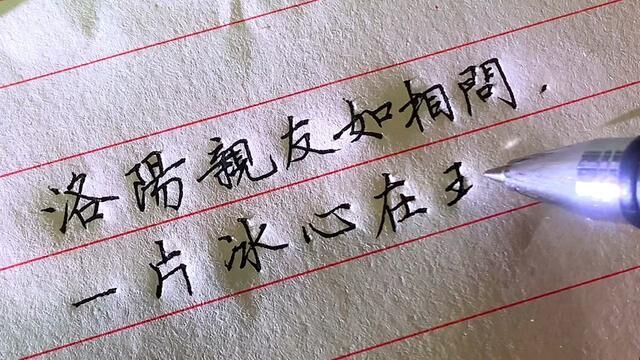 洛陽親友如相問.
一片冰心在王